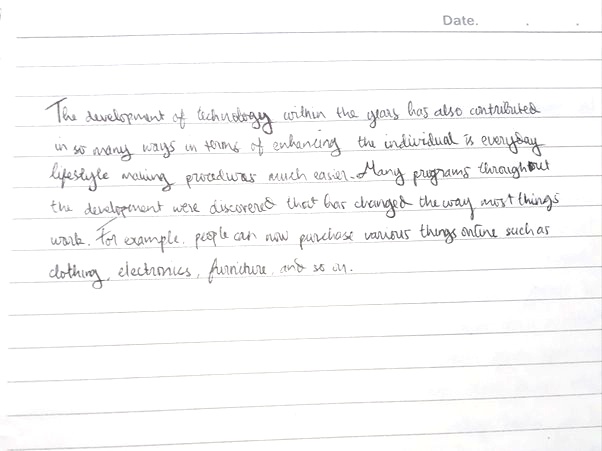 Date. . .
The development of technology within the years has also contributed
in so many ways in terms of enhancing the individual is everyday
lifestyle making procedures much easier. Many programs throughout
the development were discovered that has changed the way most things
work. For example, people can now purchase various things online such as
clothing, electronics, furniture, and so on.